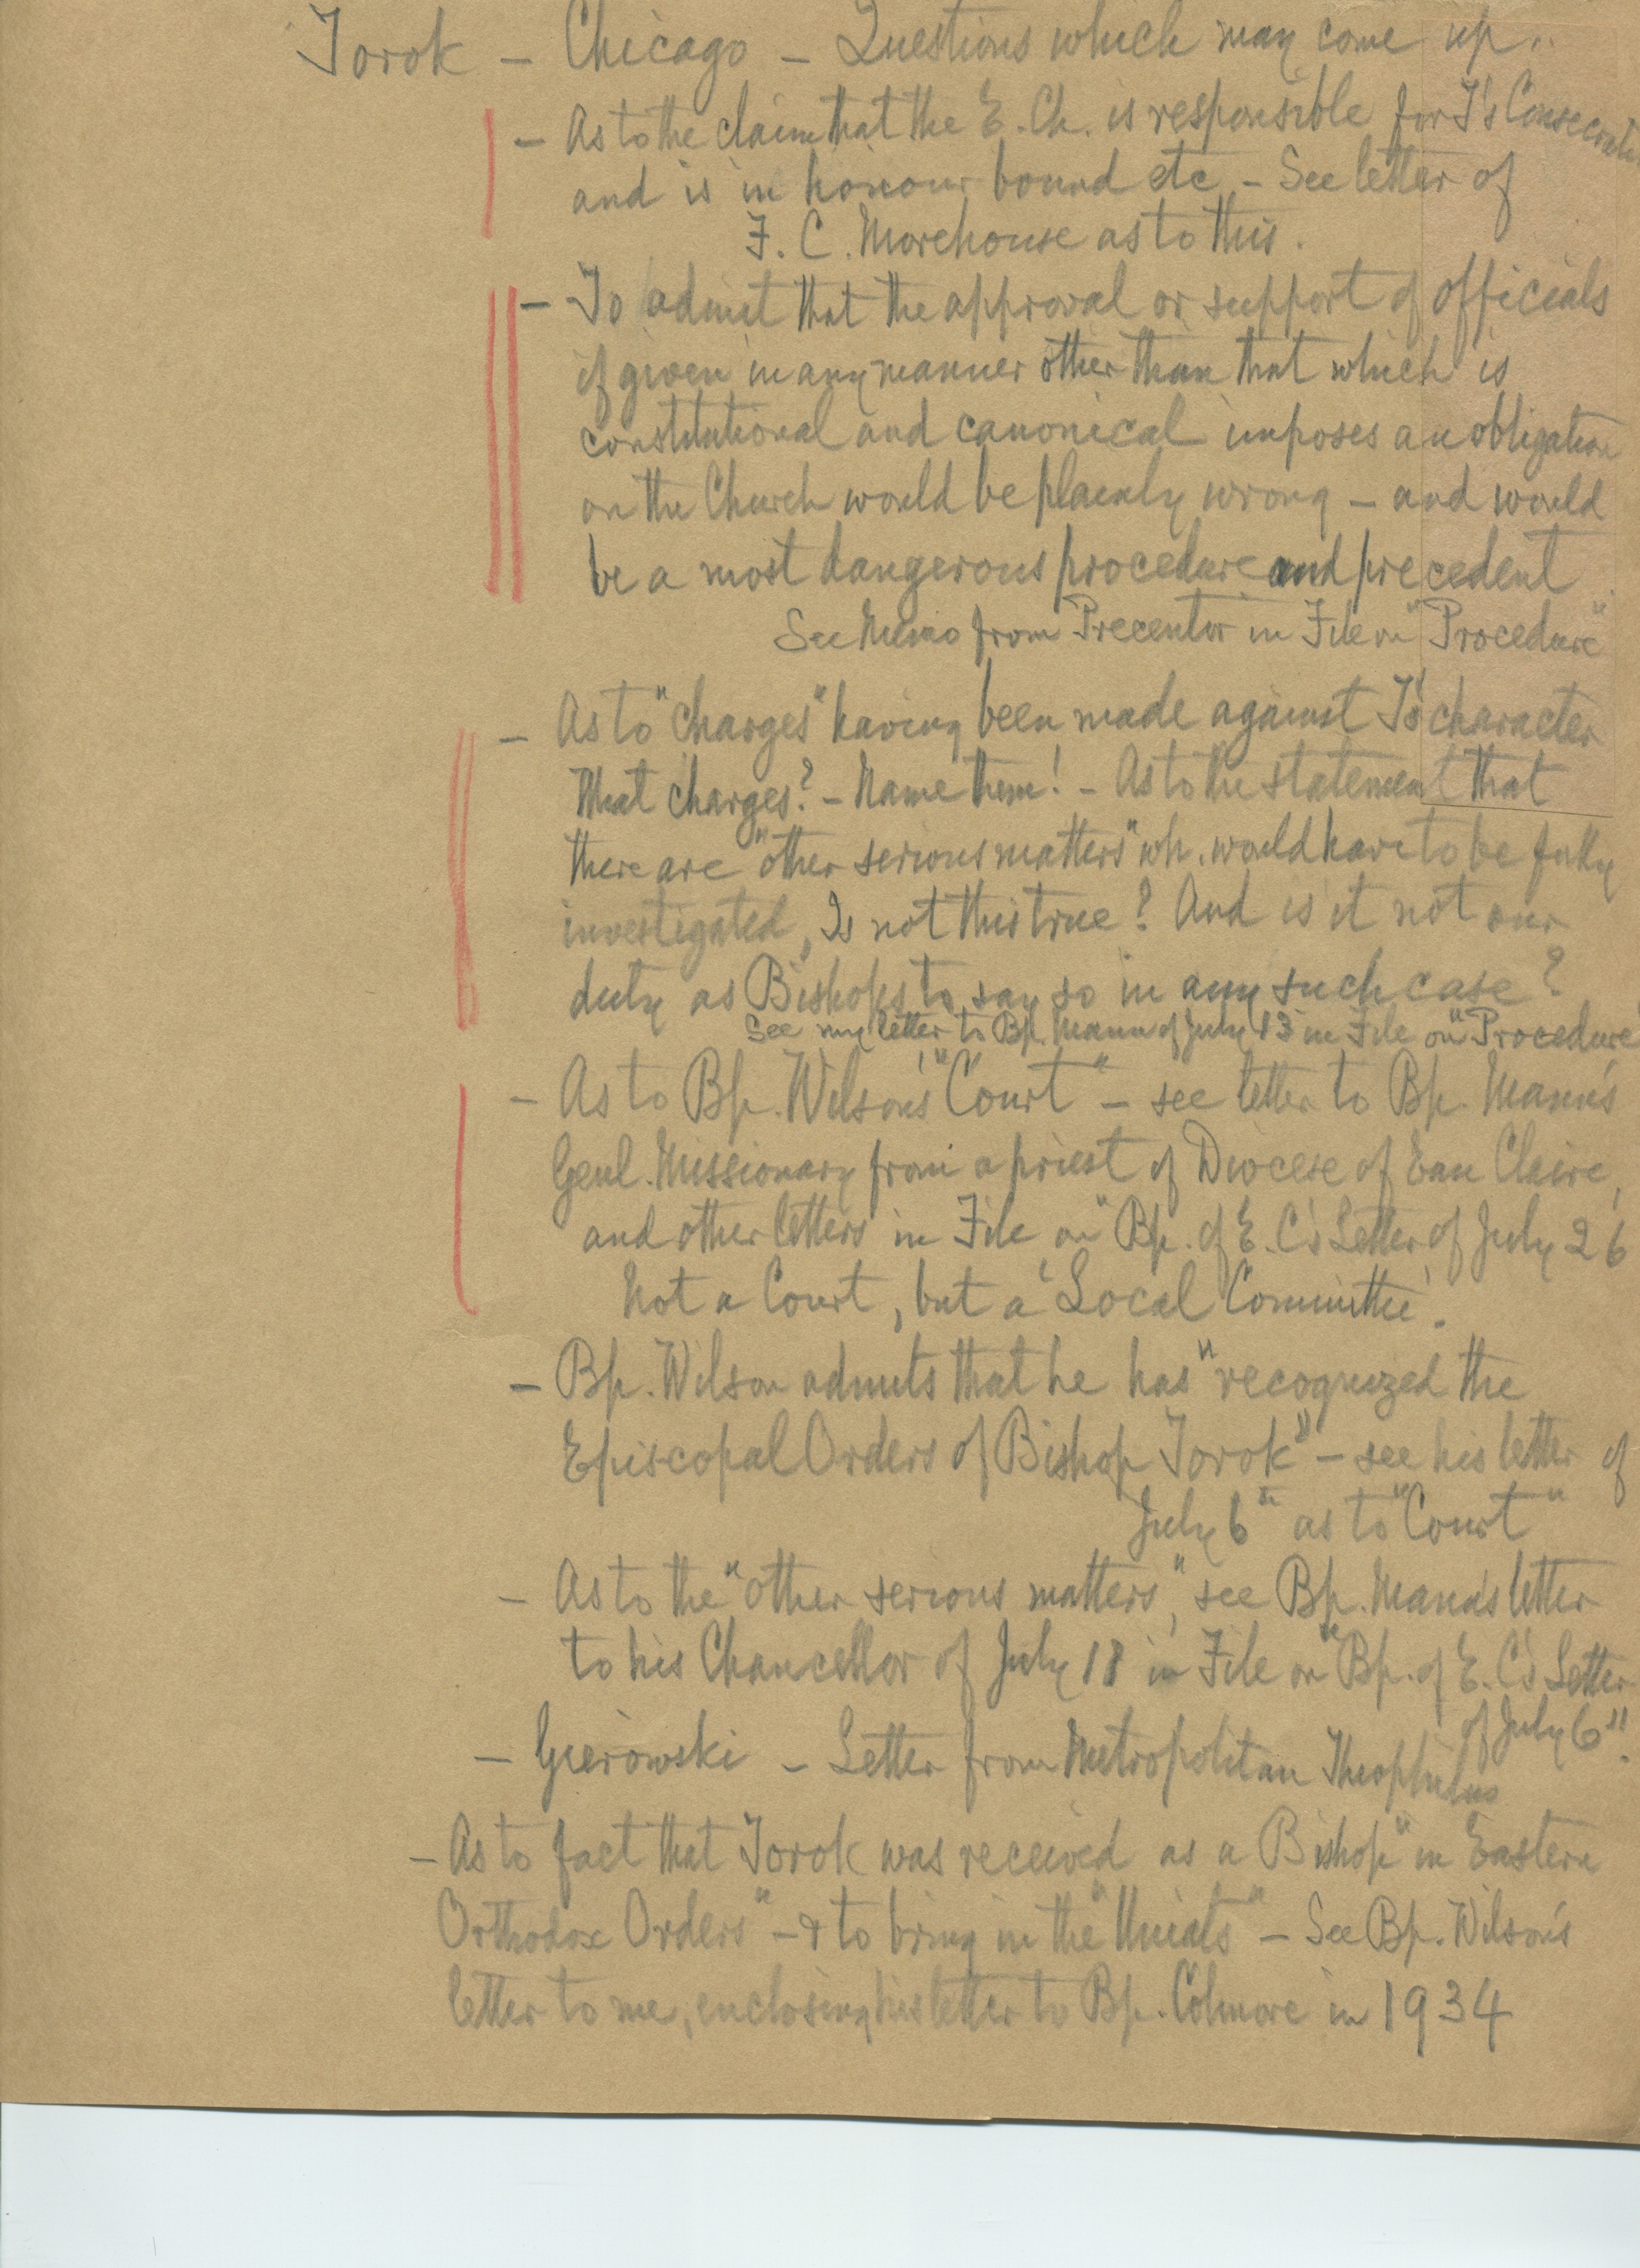 Torok - Chicago - Questions which may come up.
- As to the claim that the E. Ch. is responsible for T's Consecration
and is in honour bound etc - See letter of
F. C. Morehouse as to this.
- To admit that the approval or support of officials
if given in any manner other than that which is
constitutional and canonical imposes an obligation
on the Church would be plainly wrong - and would
be a most dangerous procedure and precedent
See Memo from Precentor in File on "Procedure"
- As to "charges" having been made against T's character
What charges? - Name them! - As to the statement that
there are "other serious matters" wh. would have to be fully
investigated, Is not this true? And is it not our
duty as Bishops to say so in any such case?
See my letter to Bp. Mann of July 13 in File on "Procedure"
- As to Bp. Wilson's "Court" - see letter to Bp. Mann's
Genl. Missionary from a priest of Diocese of Eau Claire,
and other letters in File on "Bp. of E. C's Letter of July 26
Not a Court, but a 'Local Committee'.
- Bp. Wilson admits that he has "recognized the
Episcopal Orders of Bishop Torok" - see his letter of
July 6th as to "Court"
- As to the "other serious matters", see Bp. Mann's letter
to his Chancellor of July 18 in File on "Bp. of E. C's Letter
of July 6".
- Gierowski - Letter from Metropolitan Theophilus
- As to fact that Torok was received as a Bishop "in Eastern
Orthodox Orders" - & to bring in the "Uniats" - See Bp. Wilson's
letter to me, enclosing his letter to Bp. Colmore in 1934